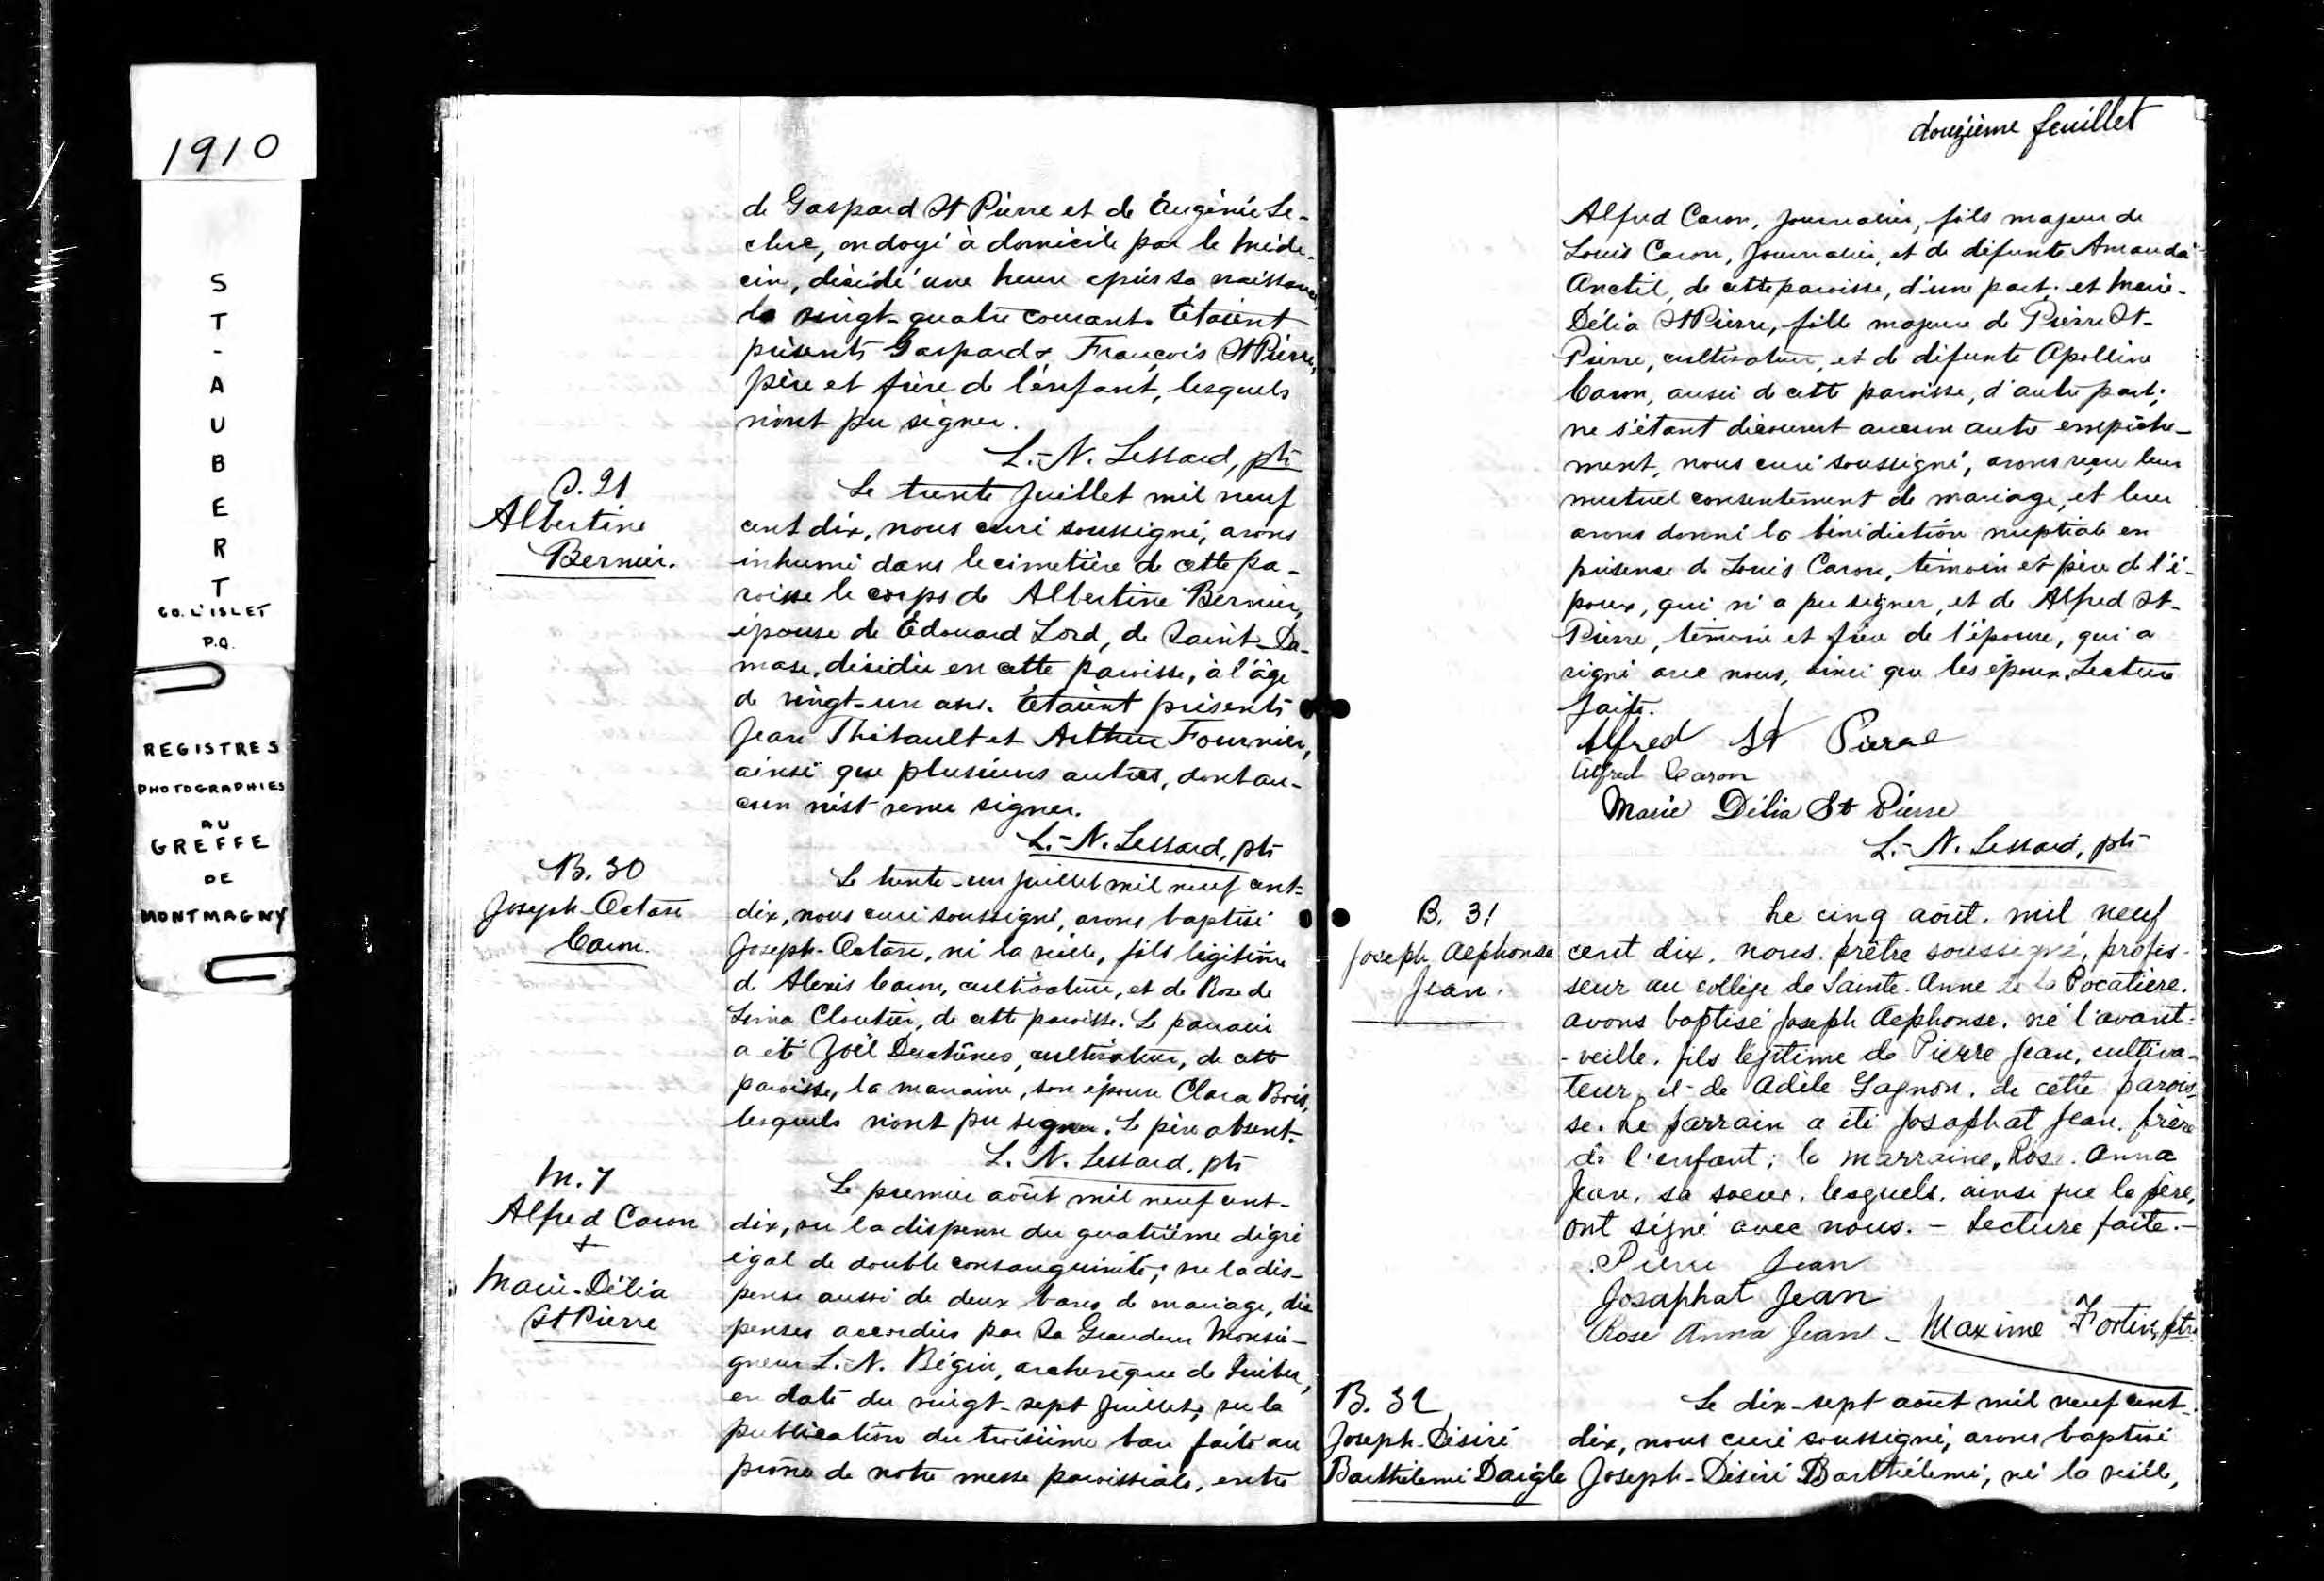 1910
ST-AUBERT
CO. L'ISLET
P.Q.
REGISTRES
PHOTOGRAPHIES
AU
GREFFE
DE
MONTMAGNY
de Gaspard St Pierre et de Eugénie Le-
clerc, ondoyé à domicile par le méde-
cin, décédé une heure après sa naissance,
le vingt-quatre courant. Etaient
présents Gaspard & François St Pierre,
père et frère de l'enfant, lesquels
n'ont pu signer.
L.-N. Lessard, ptr
S. 21
Albertine
Bernier.
Le trente juillet mil neuf
cent dix, nous curé soussigné, avons
inhumé dans le cimetière de cette pa-
roisse le corps de Albertine Bernier,
épouse de Edouard Lord, de Saint-Da-
mase, décédée en cette paroisse, à l'âge
de vingt-un ans. Etaient présents
Jean Thibault et Arthur Fournier,
ainsi que plusieurs autres, dont au-
cun n'est venu signer.
L.-N. Lessard, ptr
B. 30
Joseph-Octave
Caron.
Le trente-un juillet mil neuf cent-
dix, nous curé soussigné, avons baptisé
Joseph-Octave, né la veille, fils légitime
de Alexis Caron, cultivateur, et de Rose de
Lima Cloutier, de cette paroisse. Le parrain
a été Joël Deschênes, cultivateur, de cette
paroisse, la marraine, son épouse Clara Bois,
lesquels n'ont pu signer. Le père absent.
L. N. Lessard, ptr
M. 7
Alfred Caron
+
Marie-Délia
St Pierre
Le premier août mil neuf cent-
dix, vu la dispense du quatrième degré
égal de double consanguinité; vu la dis-
pense aussi de deux bans de mariage, dis
penses accordées par Sa Grandeur Monsei-
gneur L.-N. Bégin, archevêque de Québec,
en date du vingt-sept juillet; vu la
publication du troisième ban faite au
prône de notre messe paroissiale, entre
douzième feuillet
Alfred Caron, journalier, fils majeur de
Louis Caron, journalier, et de défunte Amanda
Anctil, de cette paroisse, d'une part; et Marie-
Délia St Pierre, fille majeure de Pierre St-
Pierre, cultivateur, et de défunte Apolline
Caron, aussi de cette paroisse, d'autre part;
ne s'étant découvert aucun autre empêche-
ment, nous curé soussigné, avons reçu leur
mutuel consentement de mariage, et leur
avons donné la bénédiction nuptiale en
présence de Louis Caron, témoin et père de l'é-
poux, qui n'a pu signer, et de Alfred St-
Pierre, témoin et frère de l'épouse, qui a
signé avec nous, ainsi que les époux. Lecture
faite.
Alfred St Pierre
Alfred Caron
Marie Délia St Pierre
L.-N. Lessard, ptr
B. 31
Joseph Alphonse
Jean.
Le cinq août. mil neuf
cent dix. nous. prêtre soussigné, profes-
seur au collège de Sainte. Anne de la Pocatière.
avons baptisé Joseph Alphonse. né l'avant-
-veille. fils légitime de Pierre Jean, cultiva-
teur, et de Adèle Gagnon. de cette parois-
se. Le parrain a été Josaphat Jean. frère
de l'enfant; la marraine, Rose. Anna
Jean. sa soeur. lesquels. ainsi que le père,
ont signé avec nous. - Lecture faite.-
Pierre Jean
Josaphat Jean
Rose Anna Jean - Maxime Fortin, ptre
B. 32
Joseph-Désiré
Barthélemi Daigle
Le dix-sept août mil neuf cent-
dix, nous curé soussigné, avons baptisé
Joseph-Désiré Barthélemi, né la veille,